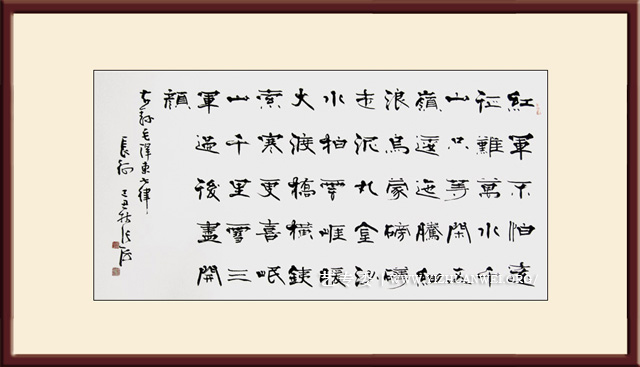 紅軍不怕遠
征難萬水千
山只等閑五
嶺逶迤騰細
浪烏蒙磅礴
走泥丸金沙
水拍雲崖暖
大渡橋橫鐵
索寒更喜岷
山千里雪三
軍過後盡開
顏
右録毛澤東七律
長征 己丑秋
WWW.YIZHUANWEI.ORG